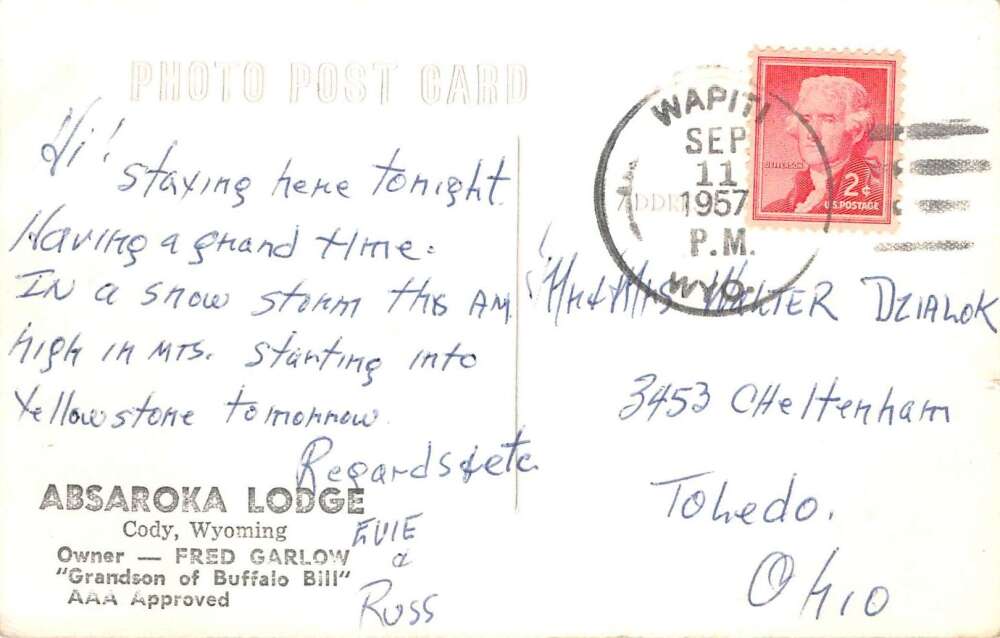 PHOTO POST CARD
Hi!
Staying here tonight.
Having a grand time.
IN a snow storm this AM
high in MTS. Starting into
Yellowstone tomorrow.
Regards & etc.
EVIE
&
RUSS
ABSAROKA LODGE
Cody, Wyoming
Owner — FRED GARLOW
"Grandson of Buffalo Bill"
AAA Approved
WAPITI
SEP
11
1957
P.M.
WYO.
JEFFERSON
2¢
U.S. POSTAGE
Mr & Mrs WALTER DZIALOK
3453 Cheltenham
Toledo.
Ohio